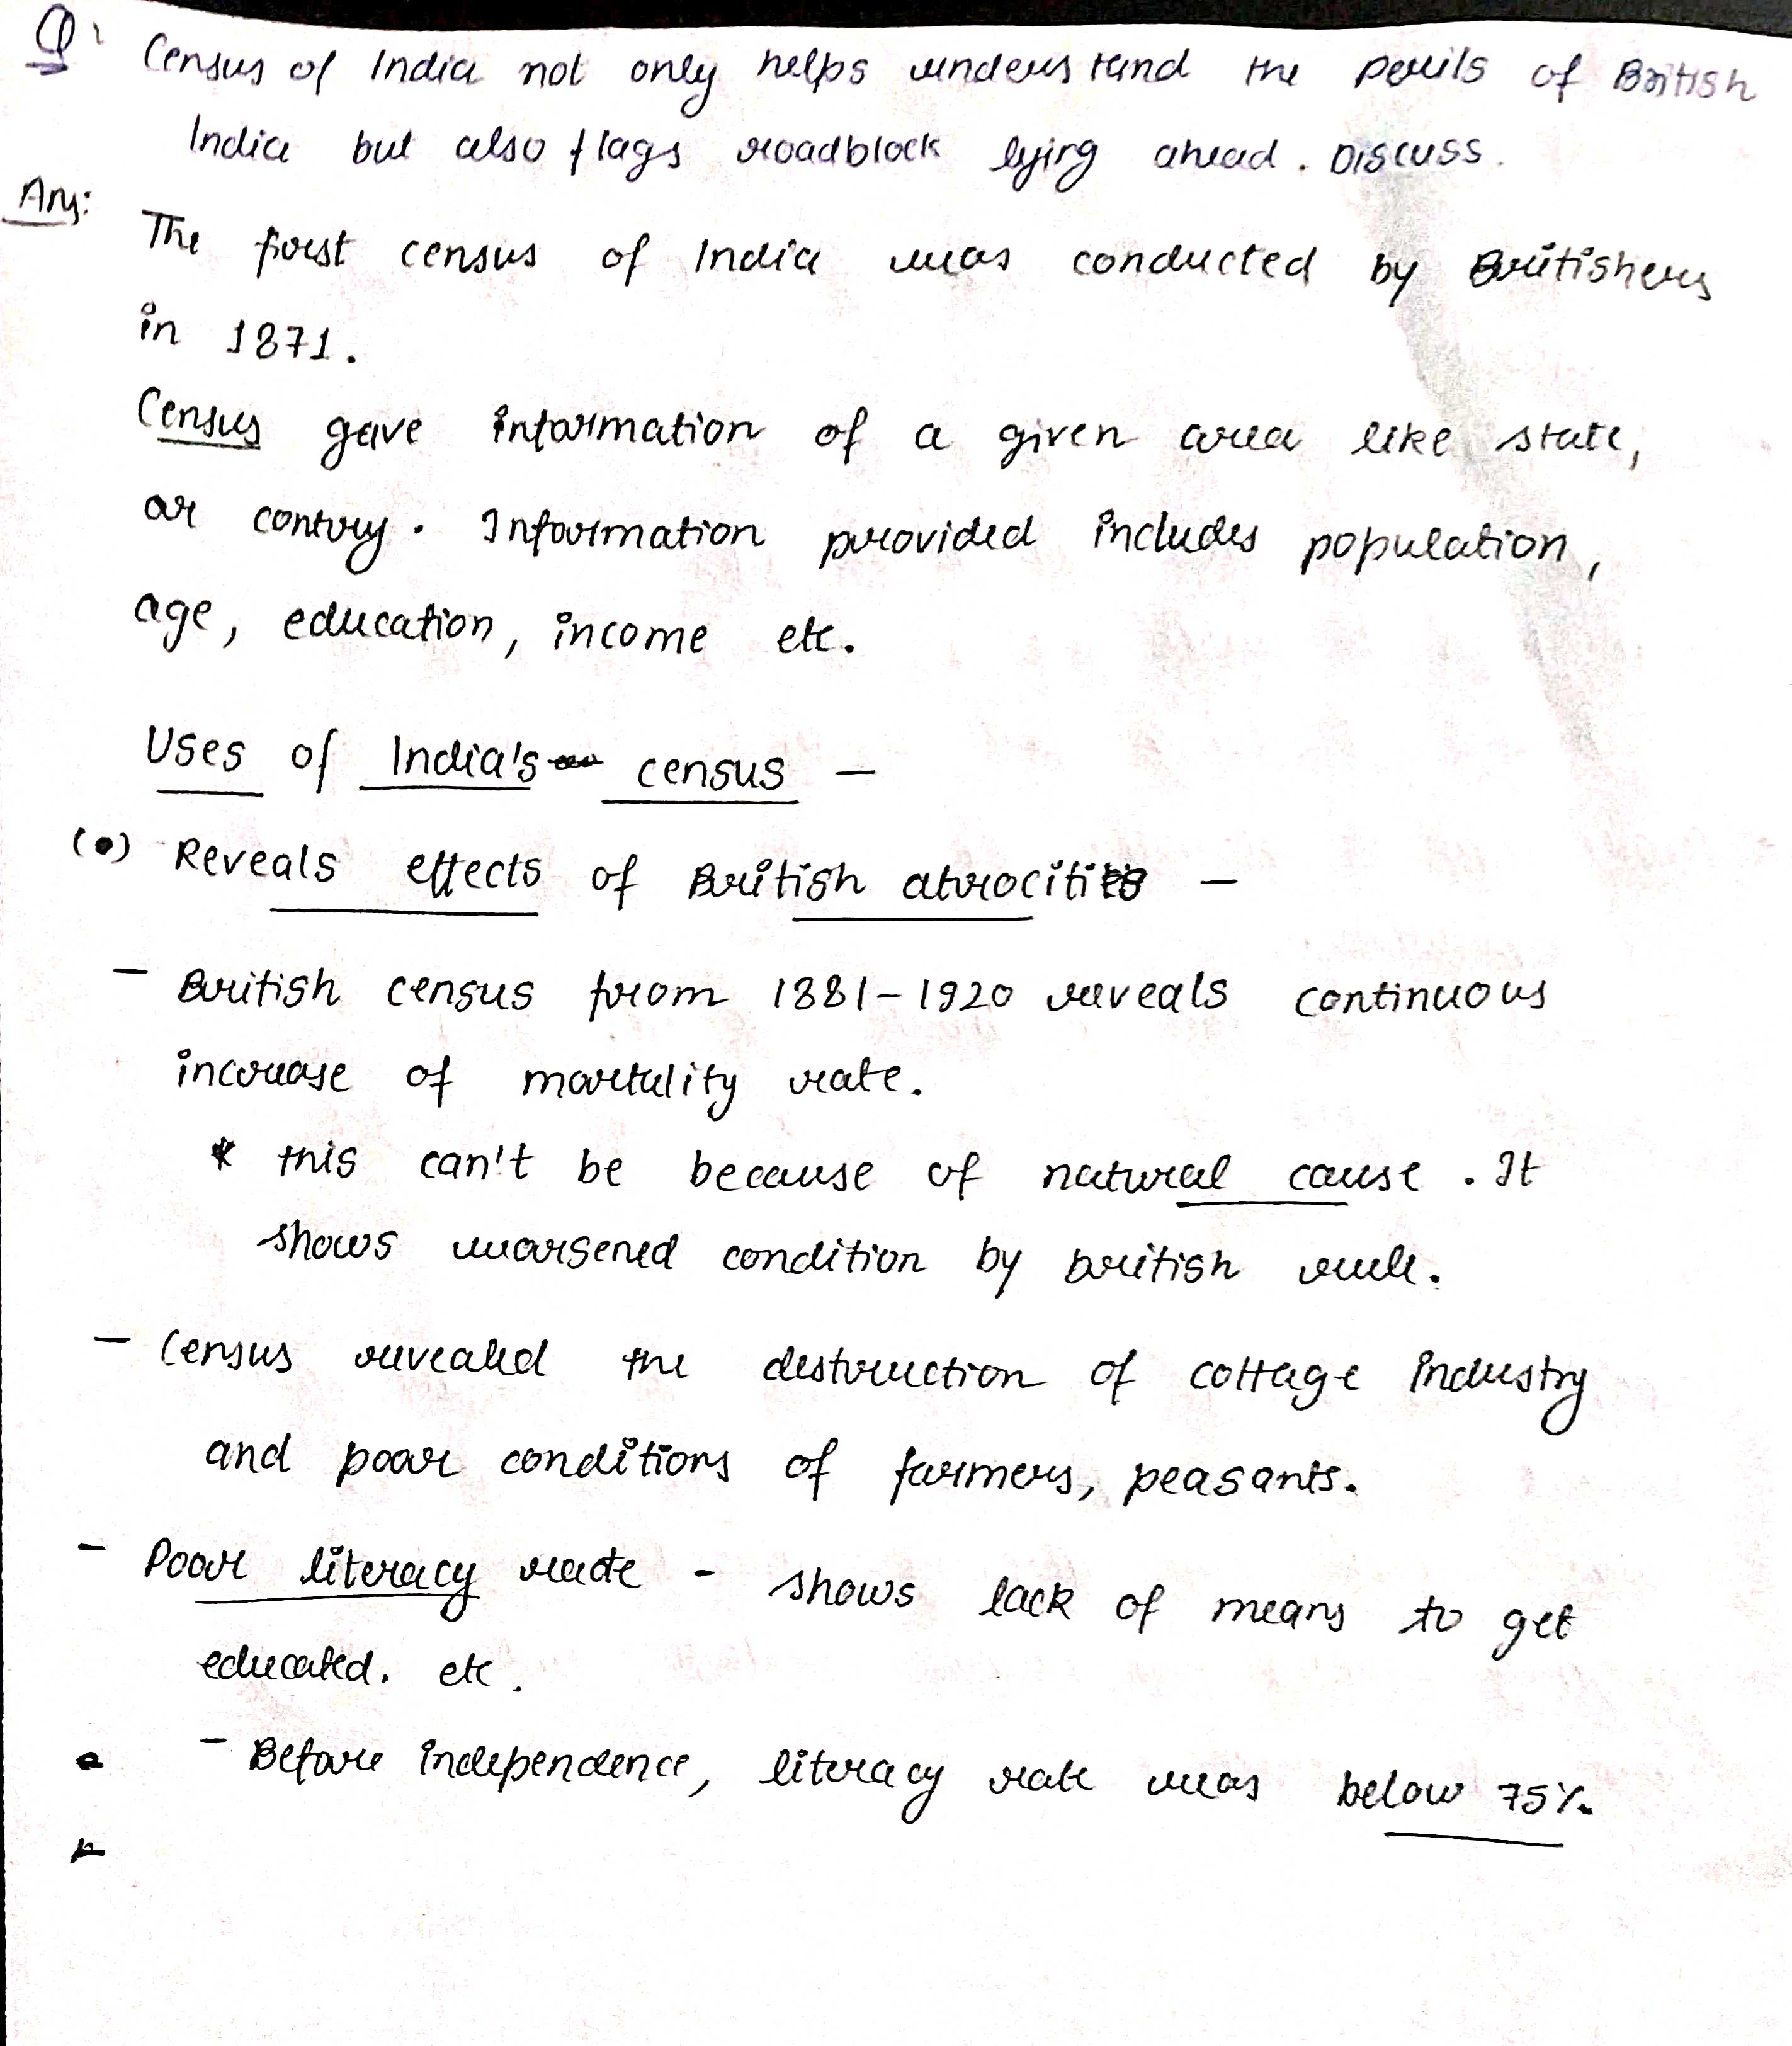 Q: Census of India not only helps understand the perils of British
India but also flags roadblock lying ahead. Discuss.
Ans:
The first census of India was conducted by Britishers
in 1871.
Census gave information of a given area like state,
or contury. Information provided includes population,
age, education, income etc.
Uses of India's census –
(•) Reveals effects of British atrocities –
– British census from 1881-1920 reveals continuous
increase of mortality rate.
* this can't be because of natural cause. It
shows worsened condition by british rule.
– Census revealed the destruction of cottage industry
and poor conditions of farmers, peasants.
– Poor literacy rate - shows lack of means to get
educated. etc.
– Before independence, literacy rate was below 75%.